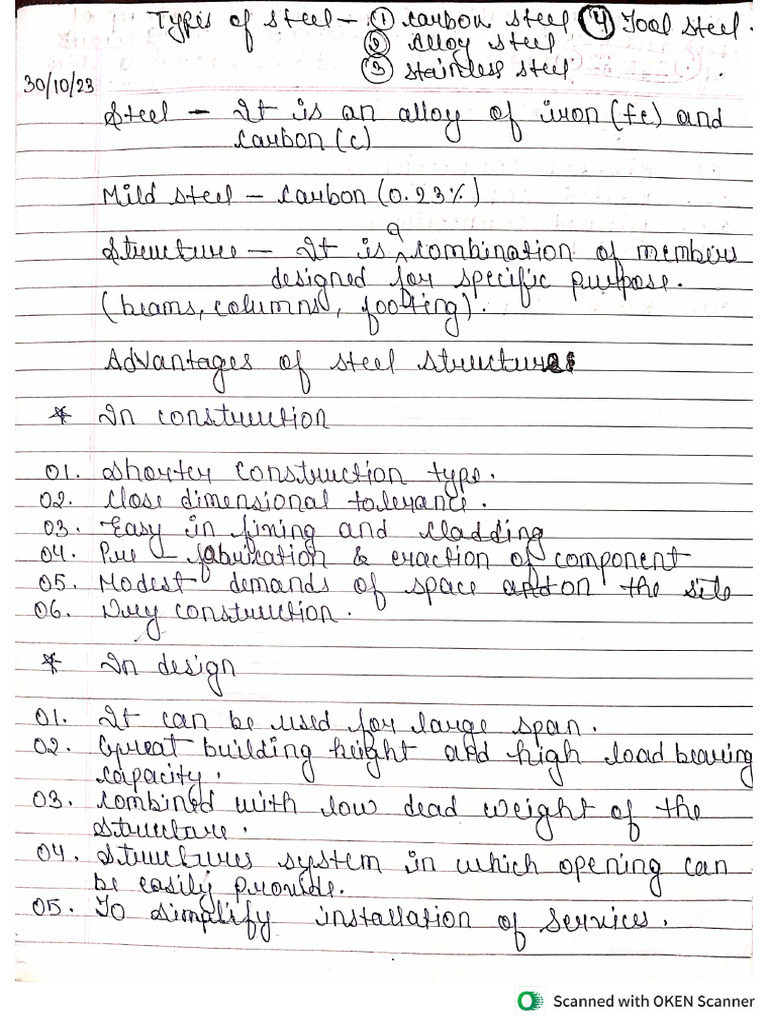 Types of steel - ① carbon steel ④ Tool steel.
② Alloy steel
③ stainless steel.
30/10/23
Steel - It is an alloy of iron (fe) and
carbon (c)
Mild steel - carbon (0.23%)
Structure - It is a combination of members
designed for specific purpose.
(beams, columns, footing).
Advantages of steel structures
* In construction
01. Shorter construction type.
02. Close dimensional tolerance.
03. Easy in fining and cladding
04. Pre - fabrication & eraction of component
05. Modest demands of space on the site
06. Dry construction.
* In design
01. It can be used for large span.
02. Great building height and high load bearing
capacity.
03. Combined with low dead weight of the
structure.
04. Structures system in which opening can
be easily provide.
05. To simplify installation of services.
Scanned with OKEN Scanner